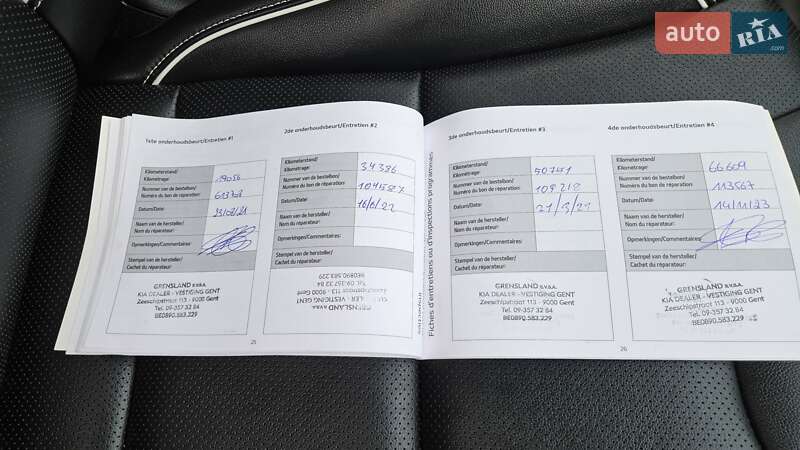 auto RIA.com
1ste onderhoudsbeurt/Entretien #1
Kilometerstand/
Kilométrage:
19056
Nummer van de bestelbon/
Numéro du bon de réparation:
Datum/Date:
Naam van de hersteller/
Nom du réparateur:
Opmerkingen/Commentaires:
Stempel van de hersteller/
Cachet du réparateur:
GRENSLAND b.v.b.a.
KIA DEALER - VESTIGING GENT
Zeeschipstraat 113 - 9000 Gent
Tel. 09-357 32 84
BE0890.583.229
25
2de onderhoudsbeurt/Entretien #2
Kilometerstand/
Kilométrage:
34386
Nummer van de bestelbon/
Numéro du bon de réparation:
Datum/Date:
Naam van de hersteller/
Nom du réparateur:
Opmerkingen/Commentaires:
Stempel van de hersteller/
Cachet du réparateur:
GRENSLAND b.v.b.a.
Zeeschipstraat 113 - 9000 Gent
Tel. 09-357 32 84
BE0890.583.229
Fiches d'entretiens ou d'inspections programmées
3de onderhoudsbeurt/Entretien #3
Kilometerstand/
Kilométrage:
Nummer van de bestelbon/
Numéro du bon de réparation:
109218
Datum/Date:
Naam van de hersteller/
Nom du réparateur:
Opmerkingen/Commentaires:
Stempel van de hersteller/
Cachet du réparateur:
GRENSLAND b.v.b.a.
KIA DEALER - VESTIGING GENT
Zeeschipstraat 113 - 9000 Gent
Tel. 09-357 32 84
BE0890.583.229
26
4de onderhoudsbeurt/Entretien #4
Kilometerstand/
Kilométrage:
66609
Nummer van de bestelbon/
Numéro du bon de réparation:
113567
Datum/Date:
14/11/23
Naam van de hersteller/
Nom du réparateur:
Opmerkingen/Commentaires:
Stempel van de hersteller/
Cachet du réparateur:
GRENSLAND b.v.b.a.
KIA DEALER - VESTIGING GENT
Zeeschipstraat 113 - 9000 Gent
Tel. 09-357 32 84
BE0890.583.229